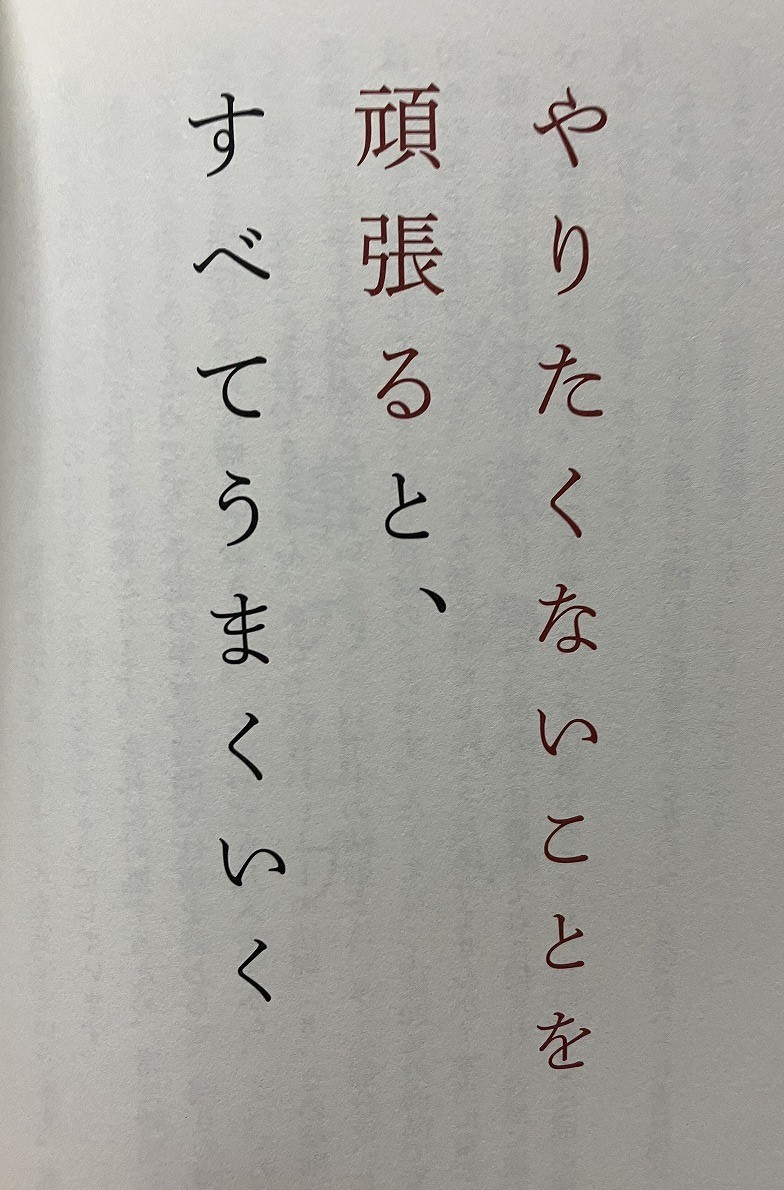 やりたくないことを
頑張ると、
すべてうまくいく